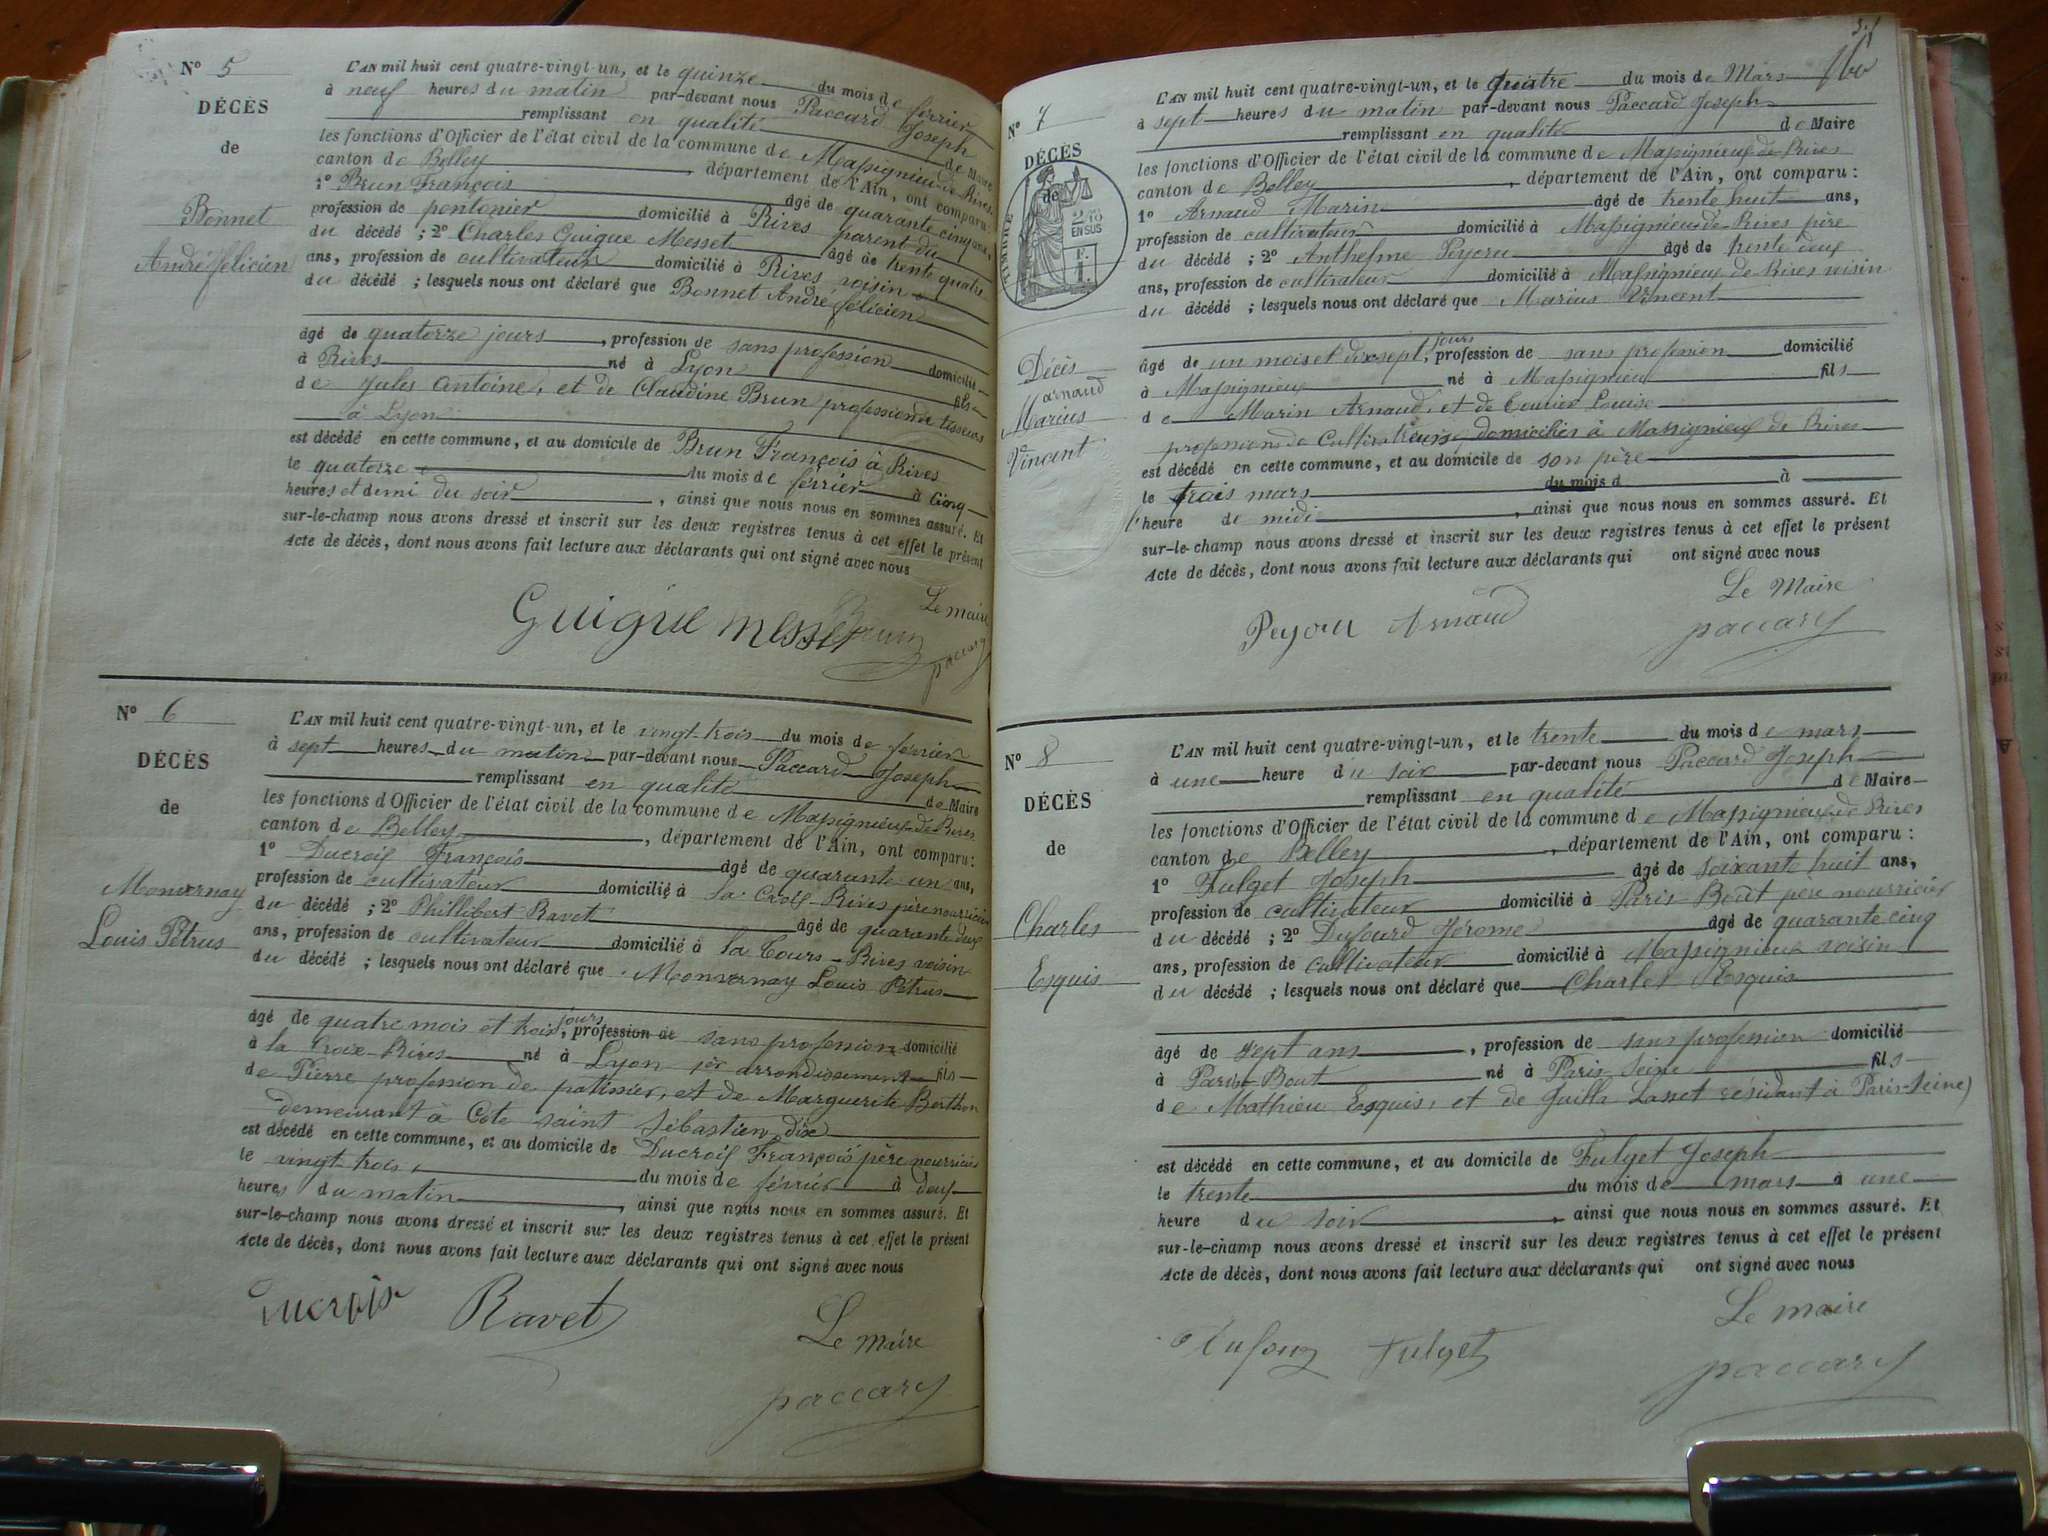 Nº 5
DÉCÈS
de
Bonnet
André félicien
L'AN mil huit cent quatre-vingt-un, et le quinze du mois de février
à neuf heures du matin par-devant nous Paccard Joseph
remplissant en qualité de Maire
les fonctions d'Officier de l'état civil de la commune de Massignieu-de-Rives
canton de Belley, département de l'Ain, ont comparu:
1º Brun François âgé de quarante cinq ans,
profession de pontonier domicilié à Rives parent du
du décédé ; 2º Charles Guigue Messet âgé de trente quatre
ans, profession de cultivateur domicilié à Rives voisin
du décédé ; lesquels nous ont déclaré que Bonnet André félicien
âgé de quatorze jours, profession de sans profession domicilié
à Rives né à Lyon fils
de Jules Antoine, et de Claudine Brun profession de tisseurs
à Lyon
est décédé en cette commune, et au domicile de Brun François à Rives
le quatorze du mois de février à Cinq
heures et demi du soir, ainsi que nous nous en sommes assuré. Et
sur-le-champ nous avons dressé et inscrit sur les deux registres tenus à cet effet le présent
Acte de décès, dont nous avons fait lecture aux déclarants qui ont signé avec nous
Le maire
Guigue messet Brun paccard
Nº 6
DÉCÈS
de
Monvernay
Louis Pétrus
L'AN mil huit cent quatre-vingt-un, et le vingt-trois du mois de février
à sept heures du matin par-devant nous Paccard Joseph
remplissant en qualité de Maire
les fonctions d'Officier de l'état civil de la commune de Massignieu-de-Rives
canton de Belley, département de l'Ain, ont comparu:
1º Ducroix François âgé de quarante un ans,
profession de cultivateur domicilié à la Croix-Rives père nourricier
du décédé ; 2º Phillibert Ravet âgé de quarante deux
ans, profession de cultivateur domicilié à la Tours-Rives voisin
du décédé ; lesquels nous ont déclaré que Monvernay Louis Pétrus
âgé de quatre mois et trois jours, profession de sans profession domicilié
à la Croix-Rives né à Lyon 1er arrondissement fils
de Pierre profession de patissier, et de Marguerite Berthon
demeurant à Côte saint Sébastien, dix
est décédé en cette commune, et au domicile de Ducroix François père nourricier
le vingt trois, du mois de février à deux
heures du matin, ainsi que nous nous en sommes assuré. Et
sur-le-champ nous avons dressé et inscrit sur les deux registres tenus à cet effet le présent
Acte de décès, dont nous avons fait lecture aux déclarants qui ont signé avec nous
Ducroix Ravet
Le maire
paccard
Nº 7
DÉCÈS
de
TIMBRE
EN SUS
Décès
arnaud
Marius
Vincent
L'AN mil huit cent quatre-vingt-un, et le quatre du mois de Mars
à sept heures du matin par-devant nous Paccard Joseph
remplissant en qualité de Maire
les fonctions d'Officier de l'état civil de la commune de Massignieux de Rives
canton de Belley, département de l'Ain, ont comparu:
1º Arnaud Marin âgé de trente huit ans,
profession de cultivateur domicilié à Massignieu-de-Rives père
du décédé ; 2º Anthelme Peyou âgé de trente deux
ans, profession de cultivateur domicilié à Massignieux de Rives voisin
du décédé ; lesquels nous ont déclaré que Marius Vincent
âgé de un mois et dix-sept jours, profession de sans profession domicilié
à Massignieu né à Massignieu fils
de Marin Arnaud, et de Louise
profession de Cultivateurs, domiciliés à Massignieux de Rives
est décédé en cette commune, et au domicile de son père
le trois mars du mois d à
l'heure de midi, ainsi que nous nous en sommes assuré. Et
sur-le-champ nous avons dressé et inscrit sur les deux registres tenus à cet effet le présent
Acte de décès, dont nous avons fait lecture aux déclarants qui ont signé avec nous
Le Maire
Peyou Arnaud paccard
Nº 8
DÉCÈS
de
Charles
Esquis
L'AN mil huit cent quatre-vingt-un, et le trente du mois de mars
à une heure du soir par-devant nous Paccard Joseph
remplissant en qualité de Maire
les fonctions d'Officier de l'état civil de la commune de Massignieux de Rives
canton de Belley, département de l'Ain, ont comparu:
1º Fulget Joseph âgé de soixante huit ans,
profession de cultivateur domicilié à Paris-Bout père nourricier
du décédé ; 2º Dufourd Jérome âgé de quarante cinq
ans, profession de cultivateur domicilié à Massignieux voisin
du décédé ; lesquels nous ont déclaré que Charles Esquis
âgé de sept ans, profession de sans profession domicilié
à Paris-Bout né à Paris Seine fils
de Mathieu Esquis, et de Lasnet résidant à Paris-Seine)
est décédé en cette commune, et au domicile de Fulget Joseph
le trente du mois de mars à une
heure du soir, ainsi que nous nous en sommes assuré. Et
sur-le-champ nous avons dressé et inscrit sur les deux registres tenus à cet effet le présent
Acte de décès, dont nous avons fait lecture aux déclarants qui ont signé avec nous
Le maire
Dufour Fulget
paccard